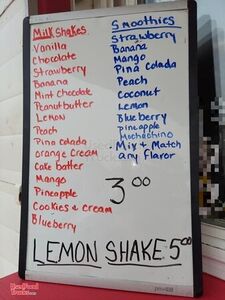 Milk Shakes
Vanilla
Chocolate
Strawberry
Banana
Mint Chocolate
Peanut butter
Lemon
Peach
Pina colada
orange Cream
Cake batter
Mango
Pineapple
Cookies & cream
Blueberry
Smoothies
Strawberry
Banana
Mango
Pina Colada
Peach
Coconut
Lemon
Blueberry
pineapple
Mochachino
Mix + Match
any Flavor
3 00
LEMON SHAKE 5 00